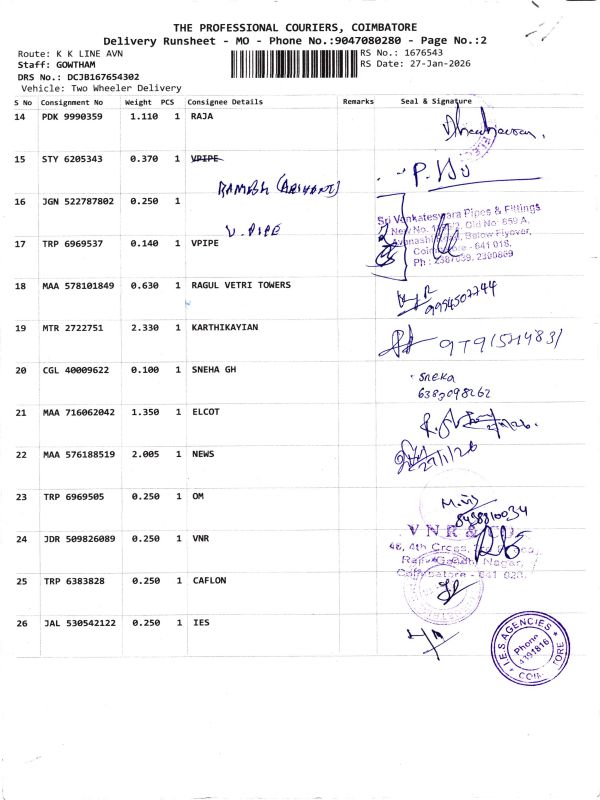 THE PROFESSIONAL COURIERS, COIMBATORE
Delivery Runsheet - MO - Phone No.:9047080280 - Page No.:2
Route: K K LINE AVN
RS No.: 1676543
Staff: GOWTHAM
RS Date: 27-Jan-2026
DRS No.: DCJB167654302
Vehicle: Two Wheeler Delivery
S No Consignment No Weight PCS Consignee Details Remarks Seal & Signature
14 PDK 9990359 1.110 1 RAJA
15 STY 6205343 0.370 1 VPIPE
RAMESH
16 JGN 522787802 0.250 1
V. PIPE
Sri Venkateswara Pipes & Fittings
Below Flyover,
Coimbatore - 641 018.
17 TRP 6969537 0.140 1 VPIPE
18 MAA 578101849 0.630 1 RAGUL VETRI TOWERS
9994507744
19 MTR 2722751 2.330 1 KARTHIKAYIAN
20 CGL 40009622 0.100 1 SNEHA GH
sneka
6383098262
21 MAA 716062042 1.350 1 ELCOT
22 MAA 576188519 2.005 1 NEWS
27/1/26
23 TRP 6969505 0.250 1 OM
8488810034
24 JDR 509826089 0.250 1 VNR
VNR &
4th Cross,
Nagar,
Coimbatore - 641 020.
25 TRP 6383828 0.250 1 CAFLON
26 JAL 530542122 0.250 1 IES
I.E.S AGENCIES
Phone
4391816